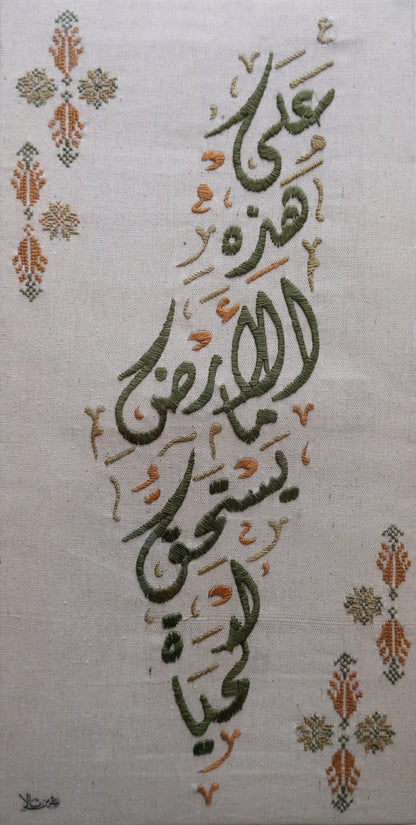 عَلَى
هَذِهِ
الْأَرْضِ
مَا
يَسْتَحِقُّ
الْحَيَاةَ